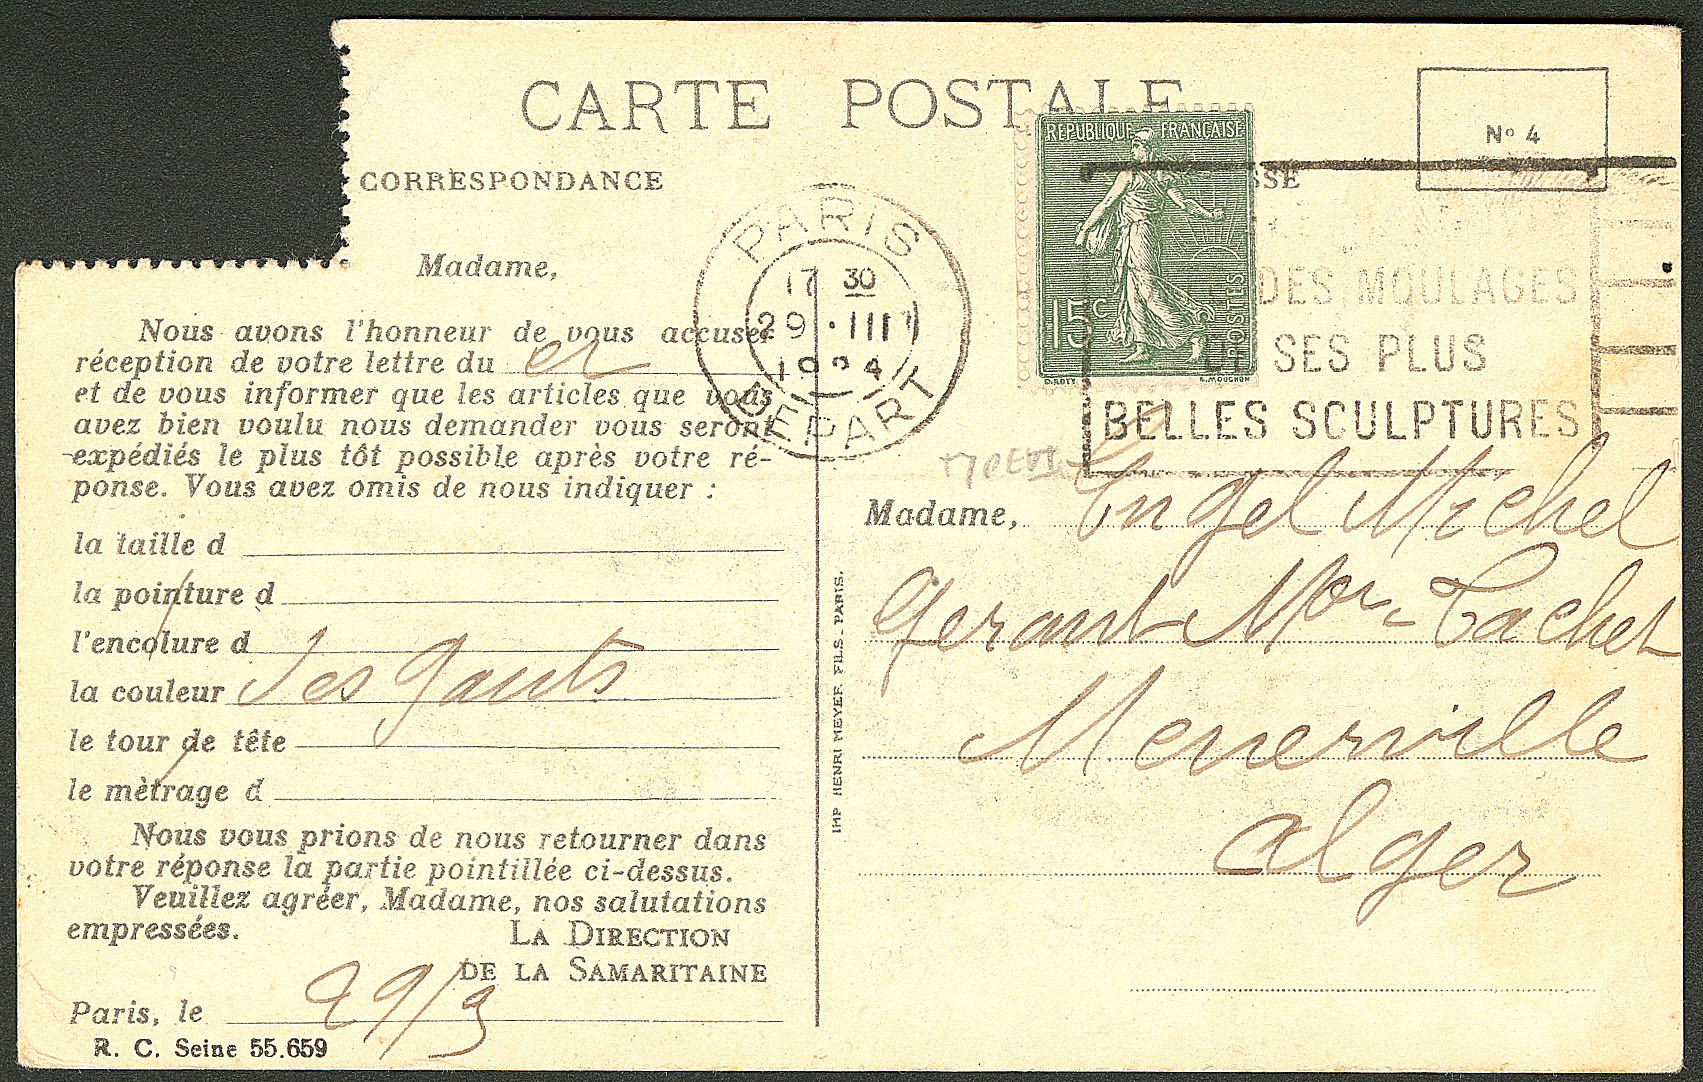 CARTE POSTALE
CORRESPONDANCE
Madame,
Nous avons l'honneur de vous accuser
réception de votre lettre du er
et de vous informer que les articles que vous
avez bien voulu nous demander vous seront
expédiés le plus tôt possible après votre ré-
ponse. Vous avez omis de nous indiquer :
la taille d
la pointure d
l'encolure d
la couleur des gants
le tour de tête
le mètrage d
Nous vous prions de nous retourner dans
votre réponse la partie pointillée ci-dessus.
Veuillez agréer, Madame, nos salutations
empressées.
LA DIRECTION
DE LA SAMARITAINE
Paris, le 29/3
R. C. Seine 55.659
IMP HENRI MEYER FILS. PARIS.
PARIS
17 30
29 · III
1924
DEPART
REPUBLIQUE FRANÇAISE
15c
POSTES
O. ROTY
E. MOUCHON
SSE
No 4
DES MOULAGES
SES PLUS
BELLES SCULPTURES
Madame, Engel Michel
Gerant Mor - Cachet
Menerville
Alger